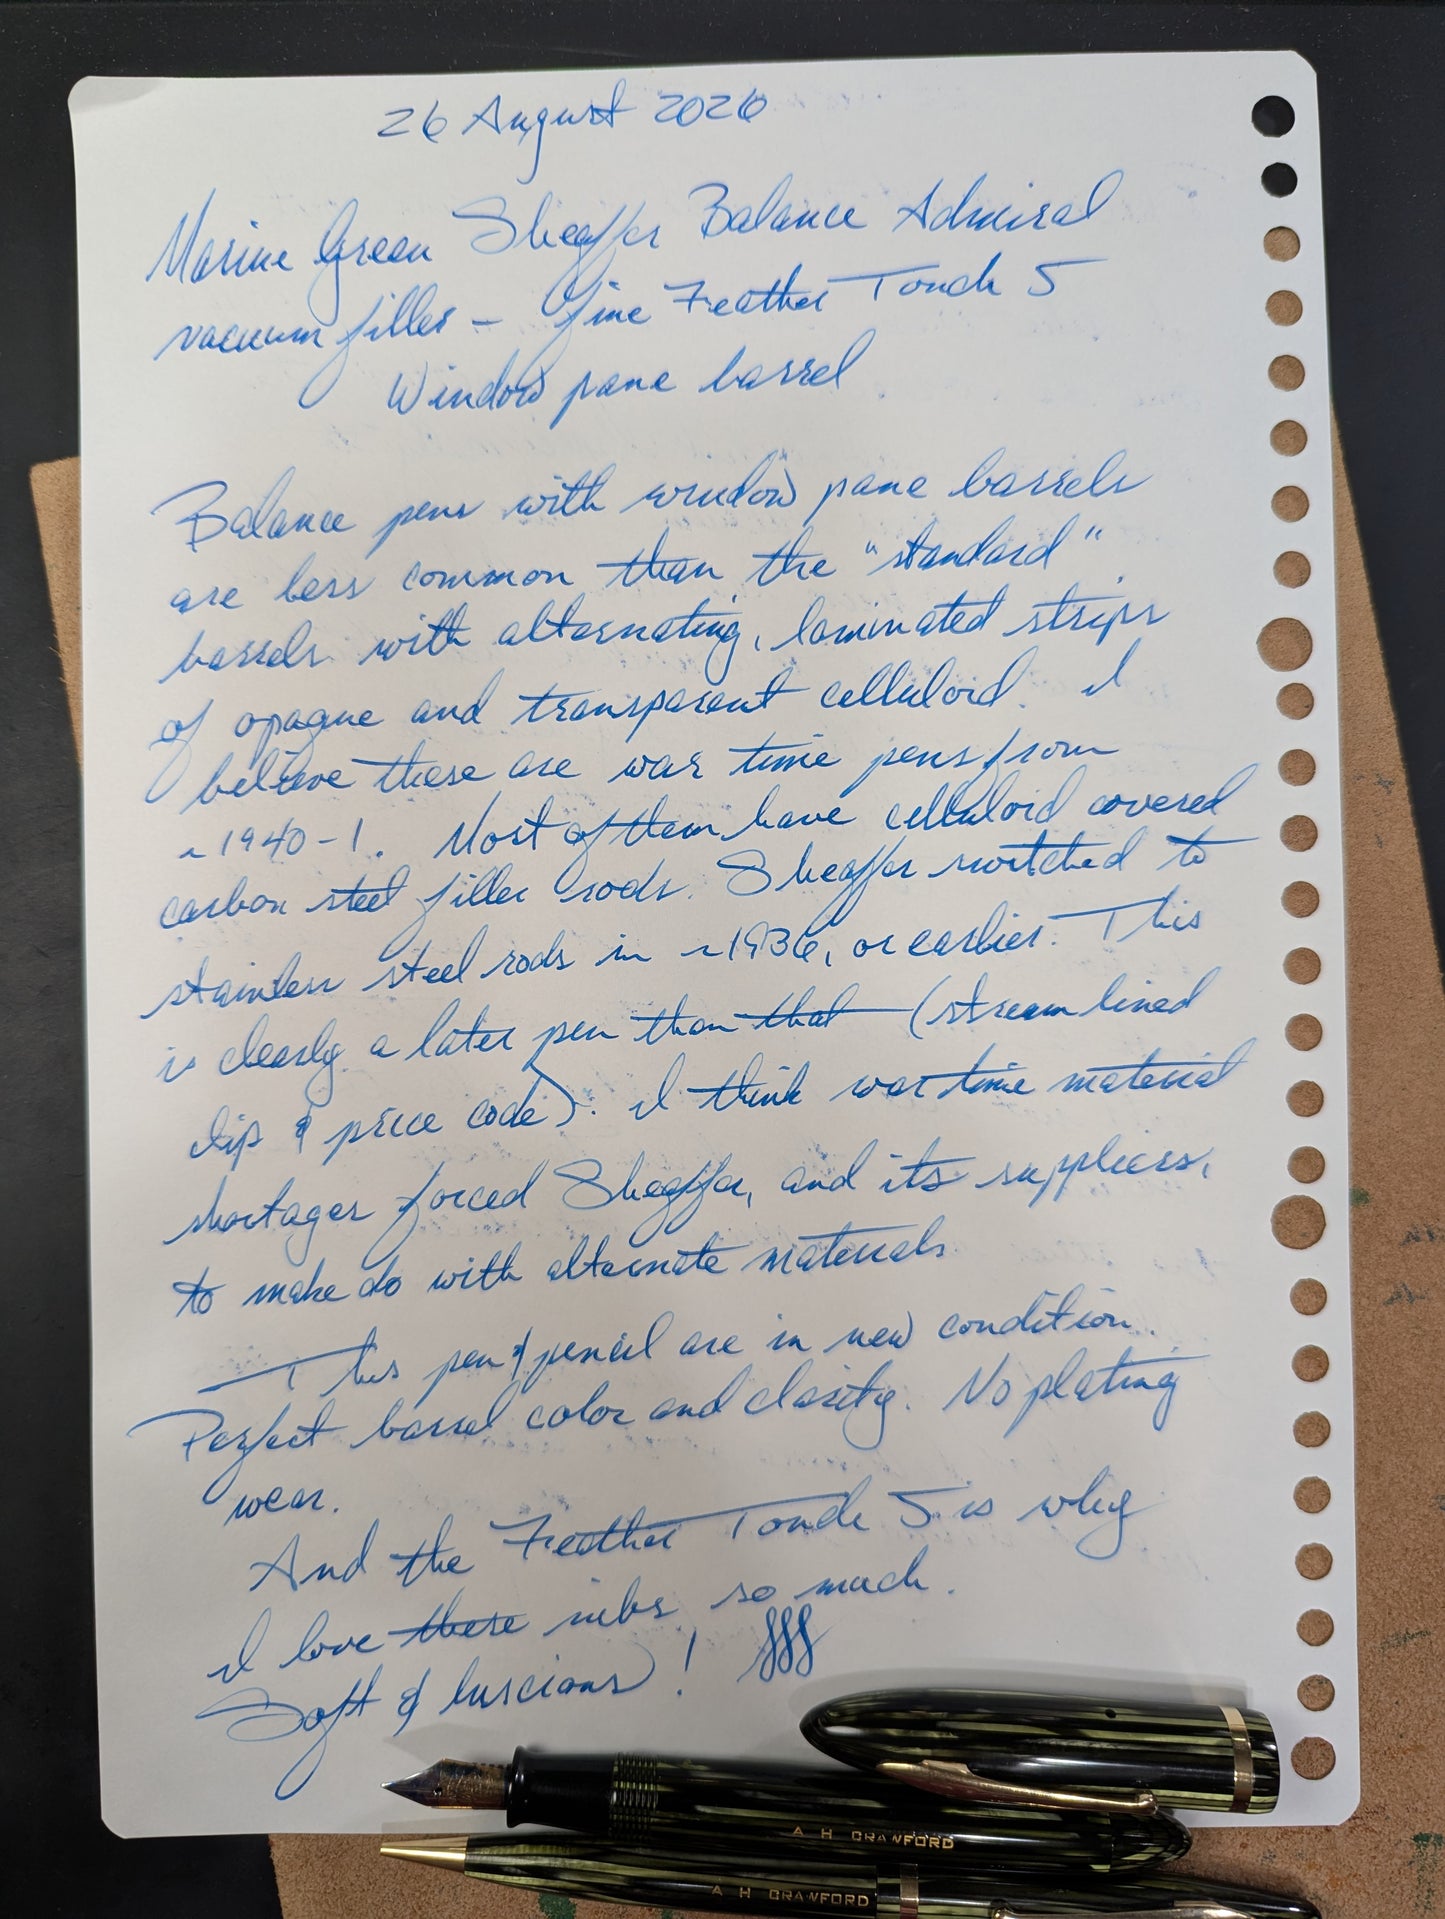 26 August 2026
Marine Green Sheaffer Balance Admiral
vacuum filler – fine Feather Touch 5
Window pane barrel
Balance pens with window pane barrels
are less common than the "standard"
barrels with alternating, laminated strips
of opaque and transparent celluloid. I
believe these are war time pens from
~1940-1. Most of them have celluloid covered
carbon steel filler rods. Sheaffer switched to
stainless steel rods in ~1936, or earlier. This
is clearly a later pen than that (streamlined
clip & price code). I think war time material
shortages forced Sheaffer, and its suppliers,
to make do with alternate materials.
This pen & pencil are in new condition.
Perfect barrel color and clarity. No plating
wear.
And the Feather Touch 5 is why
I love these nibs so much.
Soft & luscious!
A H CRAWFORD
A H CRAWFORD